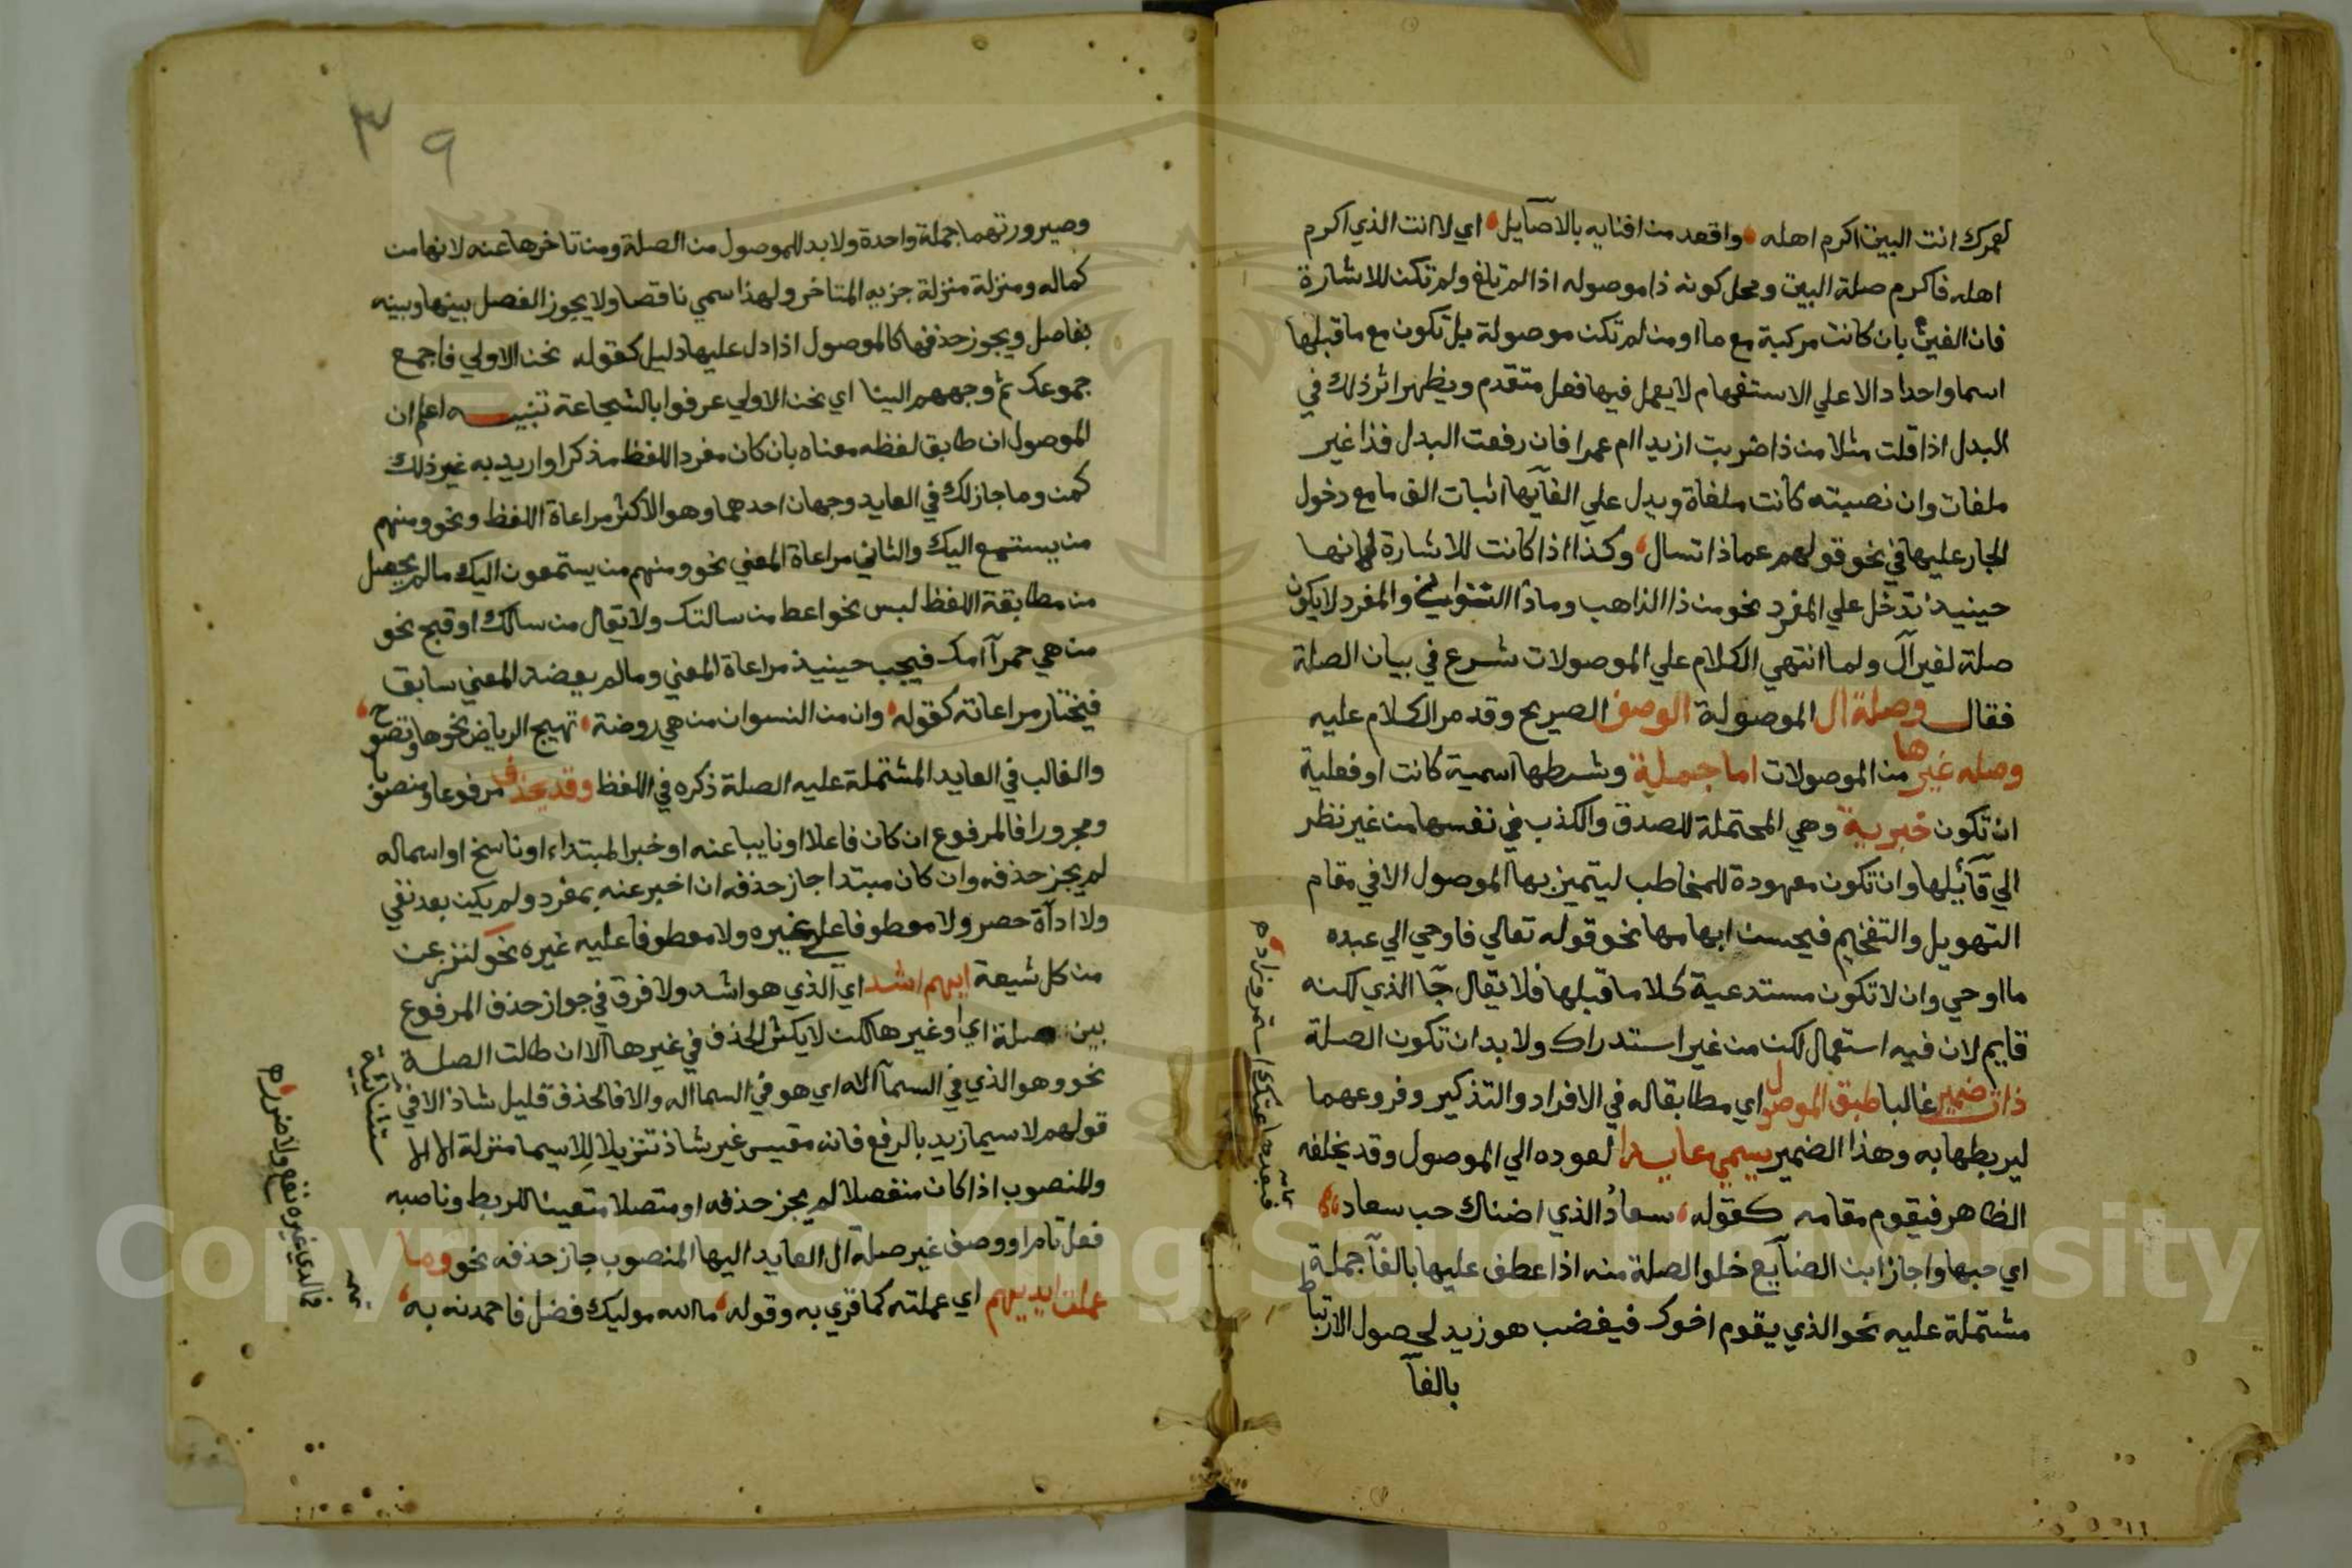 لعمرك انت البيت اكرم اهله واقعد من افنايه بالاصآيل اي لا انت الذي اكرم
اهله فاكرم صلة البيت ومحل كونه ذا موصوله اذا لم تلغ ولم تكن للاشارة
فان الغيت بان كانت مركبة مع ما او من لم تكن موصولة بل تكون مع ما قبلها
اسما واحدا دالا علي الاستفهام لا يعمل فيها فعل متقدم ويظهر اثر ذلك في
البدل اذا قلت مثلا من ذا ضربت ازيدا ام عمرا فان رفعت البدل فذا غير
ملغات وان نصبته كانت ملغاة ويدل علي الغآيها اثبات الف ما مع دخول
الجار عليها في نحو قولهم عماذا تسال وكذا اذا كانت للاشارة لانها
حينيذ تدخل علي المفرد نحو من ذا الذاهب وماذا التواني والمفرد لا يكون
صلة لغير آل ولما انتهي الكلام علي الموصولات شرع في بيان الصلة
فقال وصلة ال الموصولة الوصف الصريح وقد مر الكلام عليه
وصله غيرها من الموصولات اما جملة وشرطها اسمية كانت او فعلية
ان تكون خبرية وهي المحتملة للصدق والكذب في نفسها من غير نظر
الي قآئلها وان تكون معهودة للمخاطب ليتميز بها الموصول الا في مقام
التهويل والتفخيم فيحسن ابهامها نحو قوله تعالي فاوحي الي عبده
ما اوحي وان لا تكون مستدعية كلاما قبلها فلا يقال جآ الذي لكنه
قايم لان فيه استعمال لكن من غير استدراك ولا بد ان تكون الصلة
ذات ضمير غالبا طبق الموصول اي مطابقا له في الافراد والتذكير وفروعهما
ليربطها به وهذا الضمير يسمي عايدا لعوده الي الموصول وقد يخلفه
الظاهر فيقوم مقامه كقوله سعاد الذي اضناك حب سعادا
اي حبها واجاز ابن الصنآيع خلو الصلة منه اذا عطف عليها بالفآ جملة
مشتملة عليه نحو الذي يقوم اخوك فيغضب هو زيد لحصول الارتباط
بالفآ
تمامه
وبعدها عنك استمر وزادا
٣٩
وصيرورتهما جملة واحدة ولا بد للموصول من الصلة ومن تاخرها عنه لانها من
كماله ومنزلة منزلة جزيه المتاخر ولهذا سمي ناقصا ولا يجوز الفصل بينها وبينه
بفاصل ويجوز حذفها كالموصول اذا دل عليها دليل كقوله نحن الاولي فاجمع
جموعك ثم وجههم الينا اي نحن الاولي عرفوا بالشجاعة تنبيه اعلم ان
الموصول ان طابق لفظه معناه بان كان مفرد اللفظ مذكرا واريد به غير ذلك
كمن وما جاز لك في العايد وجهان احدهما وهو الاكثر مراعاة اللفظ ونحو ومنهم
من يستمع اليك والثاني مراعاة المعني نحو ومنهم من يستمعون اليك ما لم يحصل
من مطابقة اللفظ لبس نحو اعط من سالتك ولا يقال من سالك او قبح نحو
من هي حمرآ امك فيجب حينيذ مراعاة المعني وما لم يعضد المعني سابق
فيختار مراعاته كقوله وان من النسوان من هي روضة تهيج الرياض نحوها وتصوح
والغالب في العايد المشتملة عليه الصلة ذكره في اللفظ وقد يحذف مرفوعا ومنصوبا
ومجرورا فالمرفوع ان كان فاعلا او نايبا عنه او خبرا لمبتداء او ناسخ او اسما له
لم يجز حذفه وان كان مبتدا جاز حذفه ان اخبر عنه بمفرد ولم يكن بعد نفي
ولا اداة حصر ولا معطوفا علي غيره ولا معطوفا عليه غيره نحو لننزعن
من كل شيعة ايهم اشد اي الذي هو اشد ولا فرق في جواز حذف المرفوع
بين صلة اي او غيرها لكن لا يكثر الحذف في غيرها الا ان طالت الصلة
نحو وهو الذي في السمآ الاه اي هو في السما اله والا فالحذف قليل شاذ الا في
قولهم لا سيما زيد بالرفع فانه مقيس غير شاذ تنزيلا للاسيما منزلة الا
والمنصوب اذا كان منفصلا لم يجز حذفه او متصلا متعينا للربط وناصبه
فعل تام او وصف غير صلة ال العايد اليها المنصوب جاز حذفه نحو وما
عملت ايديهم اي عملته كما قري به وقوله ما الله موليك فضل فاحمدنه به
استثنائية
فما لدي غيره نفع ولا ضرر